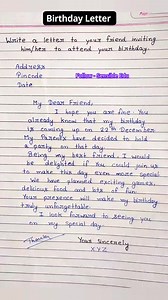 Birthday Letter
Write a letter to your friend inviting
him/her to attend your birthday.
Address
Pincode
Follow - Sensible Edu
Date
My Dear Friend,
I hope you are fine. You
already know that my birthday
is coming up on 22th December
My Parents have decided to hold
a party on that day.
Being my best friend, I would
be delighted if you could join us
to make this day even more special
We have planned exciting games,
delicious food and lots of fun.
Your presence will make my birthday
truly unforgettable.
I look forward to seeing you
on my special day.
Thanks
Your Sincerely
XYZ